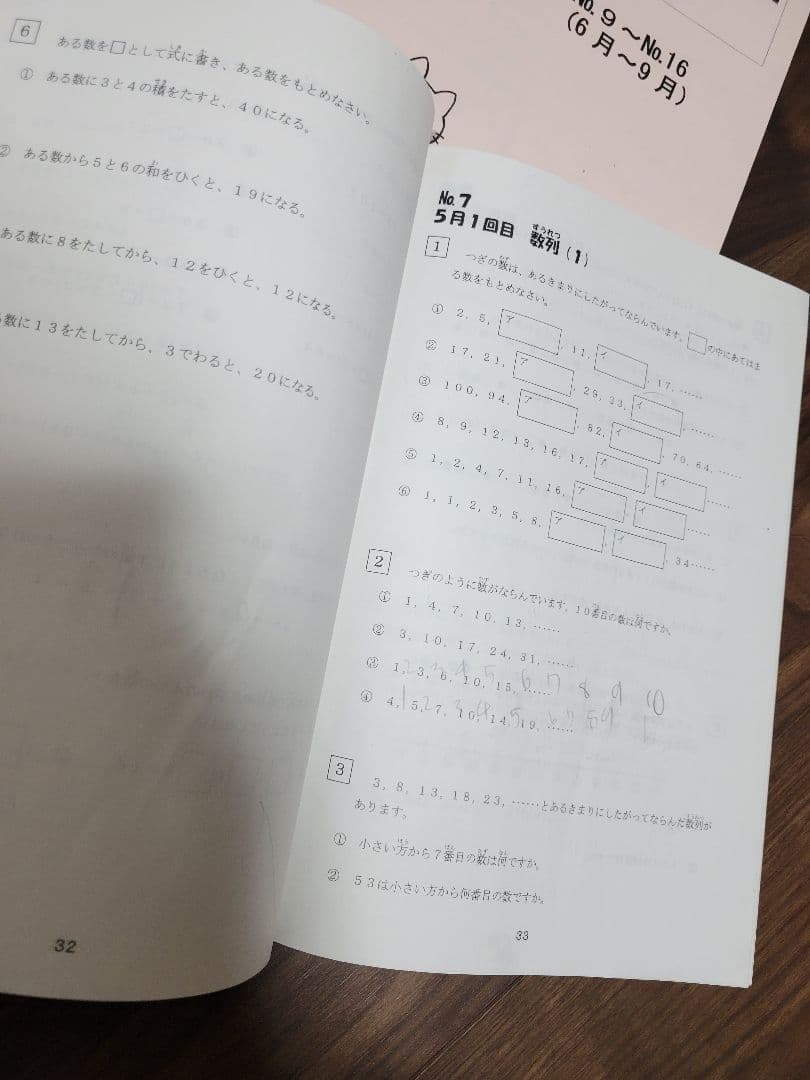 6 ある数を□として式に書き、ある数をもとめなさい。
① ある数に3と4の積をたすと、40になる。
② ある数から5と6の和をひくと、19になる。
ある数に8をたしてから、12をひくと、12になる。
数に13をたしてから、3でわると、20になる。
32
No.9～No.16
(6月～9月)
No.7
5月1回目 数列(1)
1 つぎの数は、あるきまりにしたがってならんでいます。□の中にあてはま
る数をもとめなさい。
① 2, 5, ア, 11, イ, 17, ……
② 17, 21, ア, 29, 33, イ, ……
③ 100, 94, ア, 82, イ, 70, 64, ……
④ 8, 9, 12, 13, 16, 17, ア, イ, ……
⑤ 1, 2, 4, 7, 11, 16, ア, イ, ……
⑥ 1, 1, 2, 3, 5, 8, ア, イ, 34……
2 つぎのように数がならんでいます。10番目の数は何ですか。
① 1, 4, 7, 10, 13, ……
② 3, 10, 17, 24, 31, ……
③ 1, 3, 6, 10, 15, ……
2 3 4 5 6 7 8 9 10
④ 4, 5, 7, 10, 14, 19, ……
1 2 3 4 5
3 3, 8, 13, 18, 23, ……とあるきまりにしたがってならんだ数列が
あります。
① 小さい方から7番目の数は何ですか。
② 53は小さい方から何番目の数ですか。
33